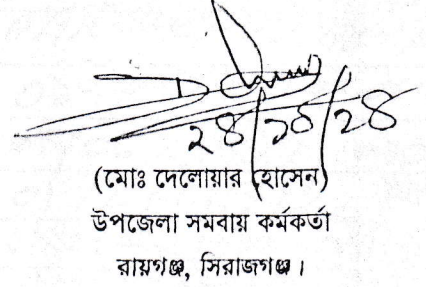 ২৪/১০/২৪
(মোঃ দেলোয়ার হোসেন)
উপজেলা সমবায় কর্মকর্তা
রায়গঞ্জ, সিরাজগঞ্জ।